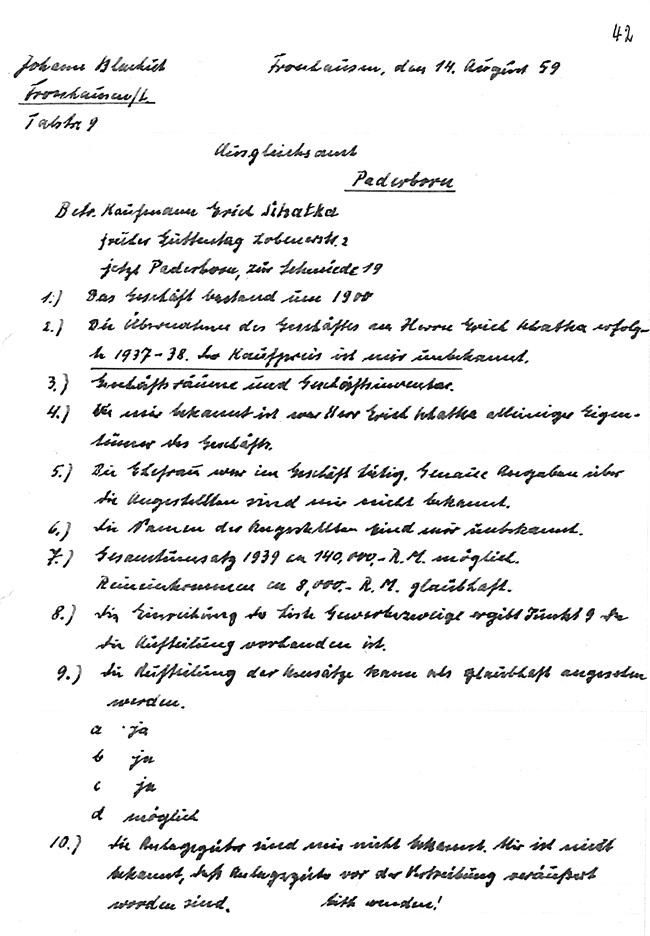 42
Johann Blachut Froschausen, den 14. August 59
Froschausen/h.
Talstr 9
Ausgleichsamt
Paderborn
Betr. Kaufmann Erich Schatka
früher Guttentag Lobenerstr. 2
jetzt Paderborn, zur Schmiede 19
1.) Das Geschäft bestand um 1900
2.) Die Übernahme des Geschäftes an Herrn Erich Schatka erfolg-
te 1937-38. Der Kaufpreis ist mir unbekannt.
3.) Geschäftsräume und Geschäftsinventar.
4.) Wie mir bekannt ist war Herr Erich Schatka alleiniger Eigen-
tümer des Geschäfts.
5.) Die Ehefrau war im Geschäft tätig. Genaue Angaben über
die Angestellten sind mir nicht bekannt.
6.) Die Namen der Angestellten sind mir unbekannt.
7.) Gesamtumsatz 1939 ca 140,000,- R.M. möglich.
Reineinkommen ca 8,000,- R.M. glaubhaft.
8.) Die Einreihung der Liste Gewerbezweige ergibt Punkt 9 da
die Aufteilung vorhanden ist.
9.) Die Aufteilung der Umsätze kann als glaubhaft angesehen
werden.
a ja
b ja
c ja
d möglich
10.) Die Anlagegüter sind mir nicht bekannt. Mir ist nicht
bekannt, daß Anlagegüter vor der Vertreibung veräußert
worden sind. bitte wenden!